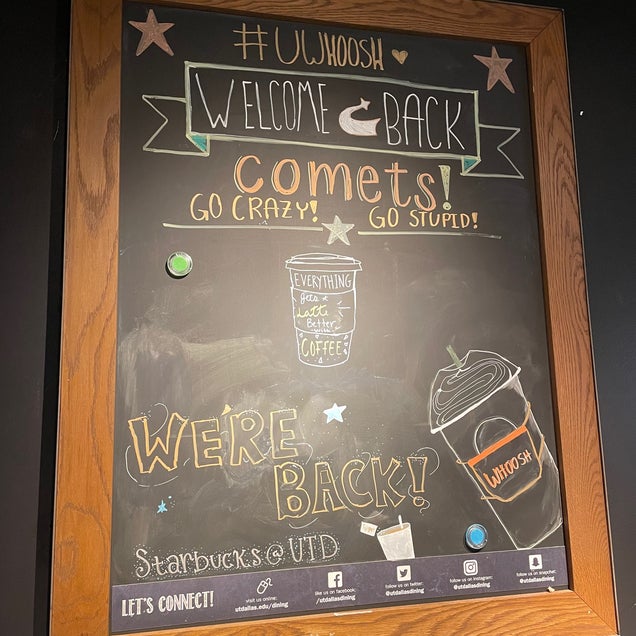 #UWHOOSH
WELCOME BACK
COMETS!
GO CRAZY! GO STUPID!
EVERYTHING
gets a
Latte
Better
with
COFFEE
WE'RE
BACK!
WHOOSH
Starbucks @ UTD
LET'S CONNECT!
visit us online:
utdallas.edu/dining
like us on facebook:
/utdallasdining
follow us on twitter:
@utdallasdining
follow us on instagram:
@utdallasdining
follow us on snapchat:
@utdallasdining